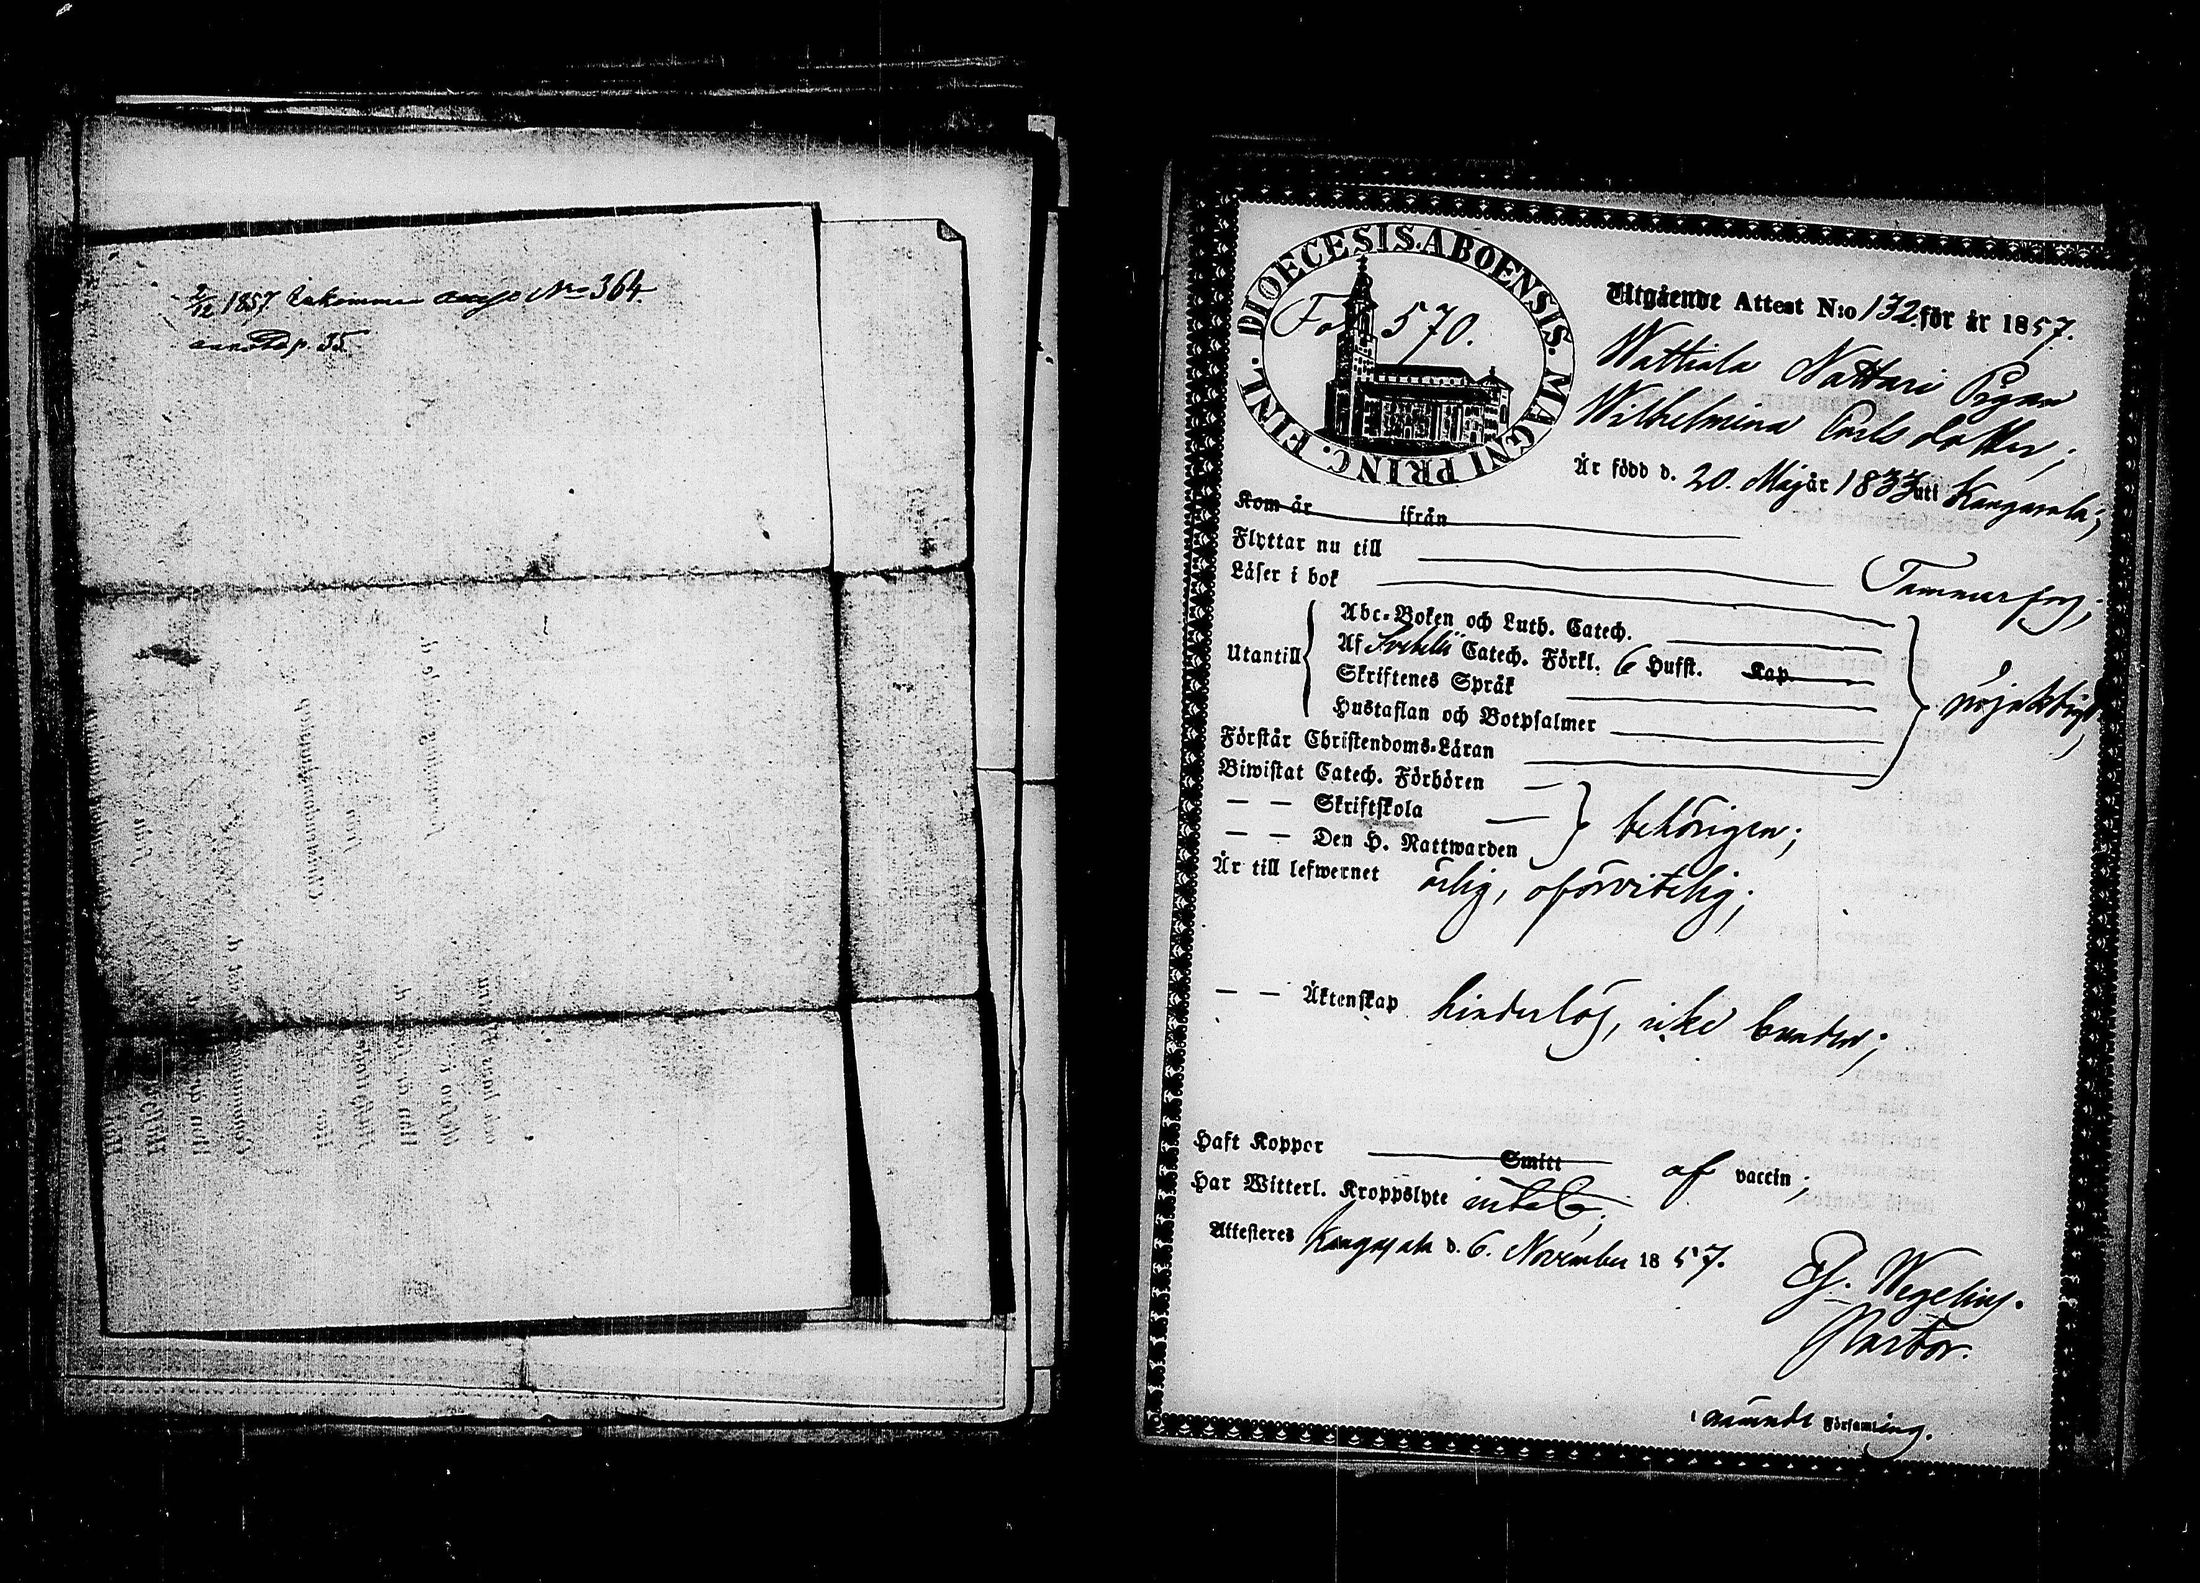 2/12 1857 Inkommen attest No 364
p. 35.
DIOECESIS. ABOENSIS. MAGNI PRINC. FINL.
Fol 570.
Utgående Attest N:o 132. för år 1857.
Wattiala Nattari Pigan
Wilhelmina Carls dotter;
Är född d. 20. Maj år 1833 uti Kangasala;
Kom år ifrån
Flyttar nu till Tammerfors;
Läser i bok
Utantill
Abc-Boken och Luth. Catech.
Af Svebilii Catech. Förkl. 6 Hufst. Kap.
Skriftenes Språk
Hustaflan och Botpsalmer
nöjaktigt;
Förstår Christendoms-Läran
Biwistat Catech. Förhören
— — Skriftskola
— — Den H. Nattwarden
behörigen;
Är till lefwernet ärlig, oförvitelig;
— — Äktenskap hinderlös, icke bunden;
Haft Koppor Smitt af vaccin;
Har Witterl. Kroppslyte intet;
Attesteres Kangasala d. 6. November 1857.
Wegelius.
Pastor.
i nämnde Församling.